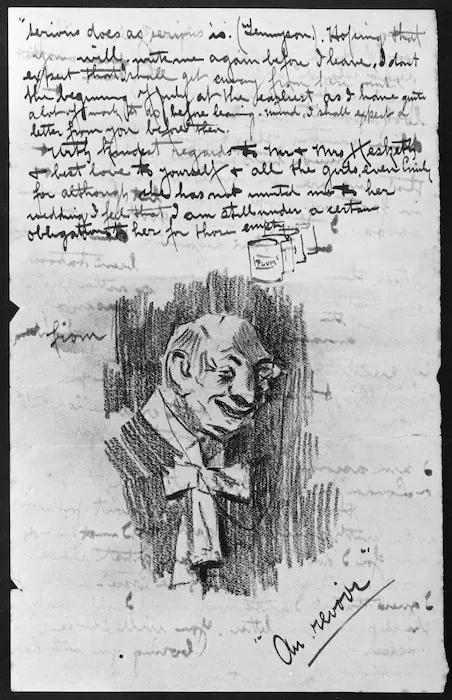 "serious does as serious is. (Tennyson). Hoping that
will write me again before I leave. I don't
expect that I shall get away from here until
the beginning of July at the earliest as I have quite
a lot of work to do before leaving. mind I shall expect a
letter from you before then.
With kindest regards to Mr & Mrs Hesketh
& best love to yourself & all the girls, even Emily
for although she has not invited me to her
wedding I feel that I am still under a certain
obligation to her for those empty
PLUM
from
"Au revoir"